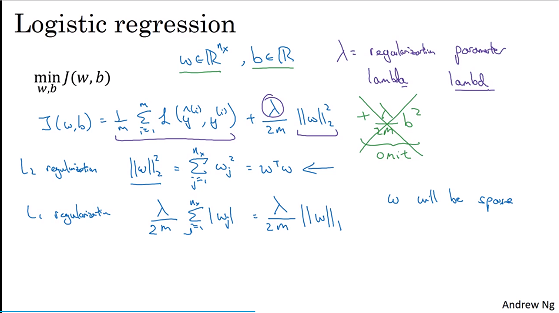 Logistic regression
w∈ℝ^{n_x}, b∈ℝ
λ = regularization parameter
lambda lambd
min_{w,b} J(w, b)
J(w,b) = 1/m Σ_{i=1}^{m} L(ŷ^{(i)}, y^{(i)}) + λ/2m ||w||_2^2 + λ/2m b^2
omit
L_2 regularization ||w||_2^2 = Σ_{j=1}^{n_x} w_j^2 = w^T w ←
L_1 regularization λ/2m Σ_{j=1}^{n_x} |w_j| = λ/2m ||w||_1
w will be sparse
Andrew Ng